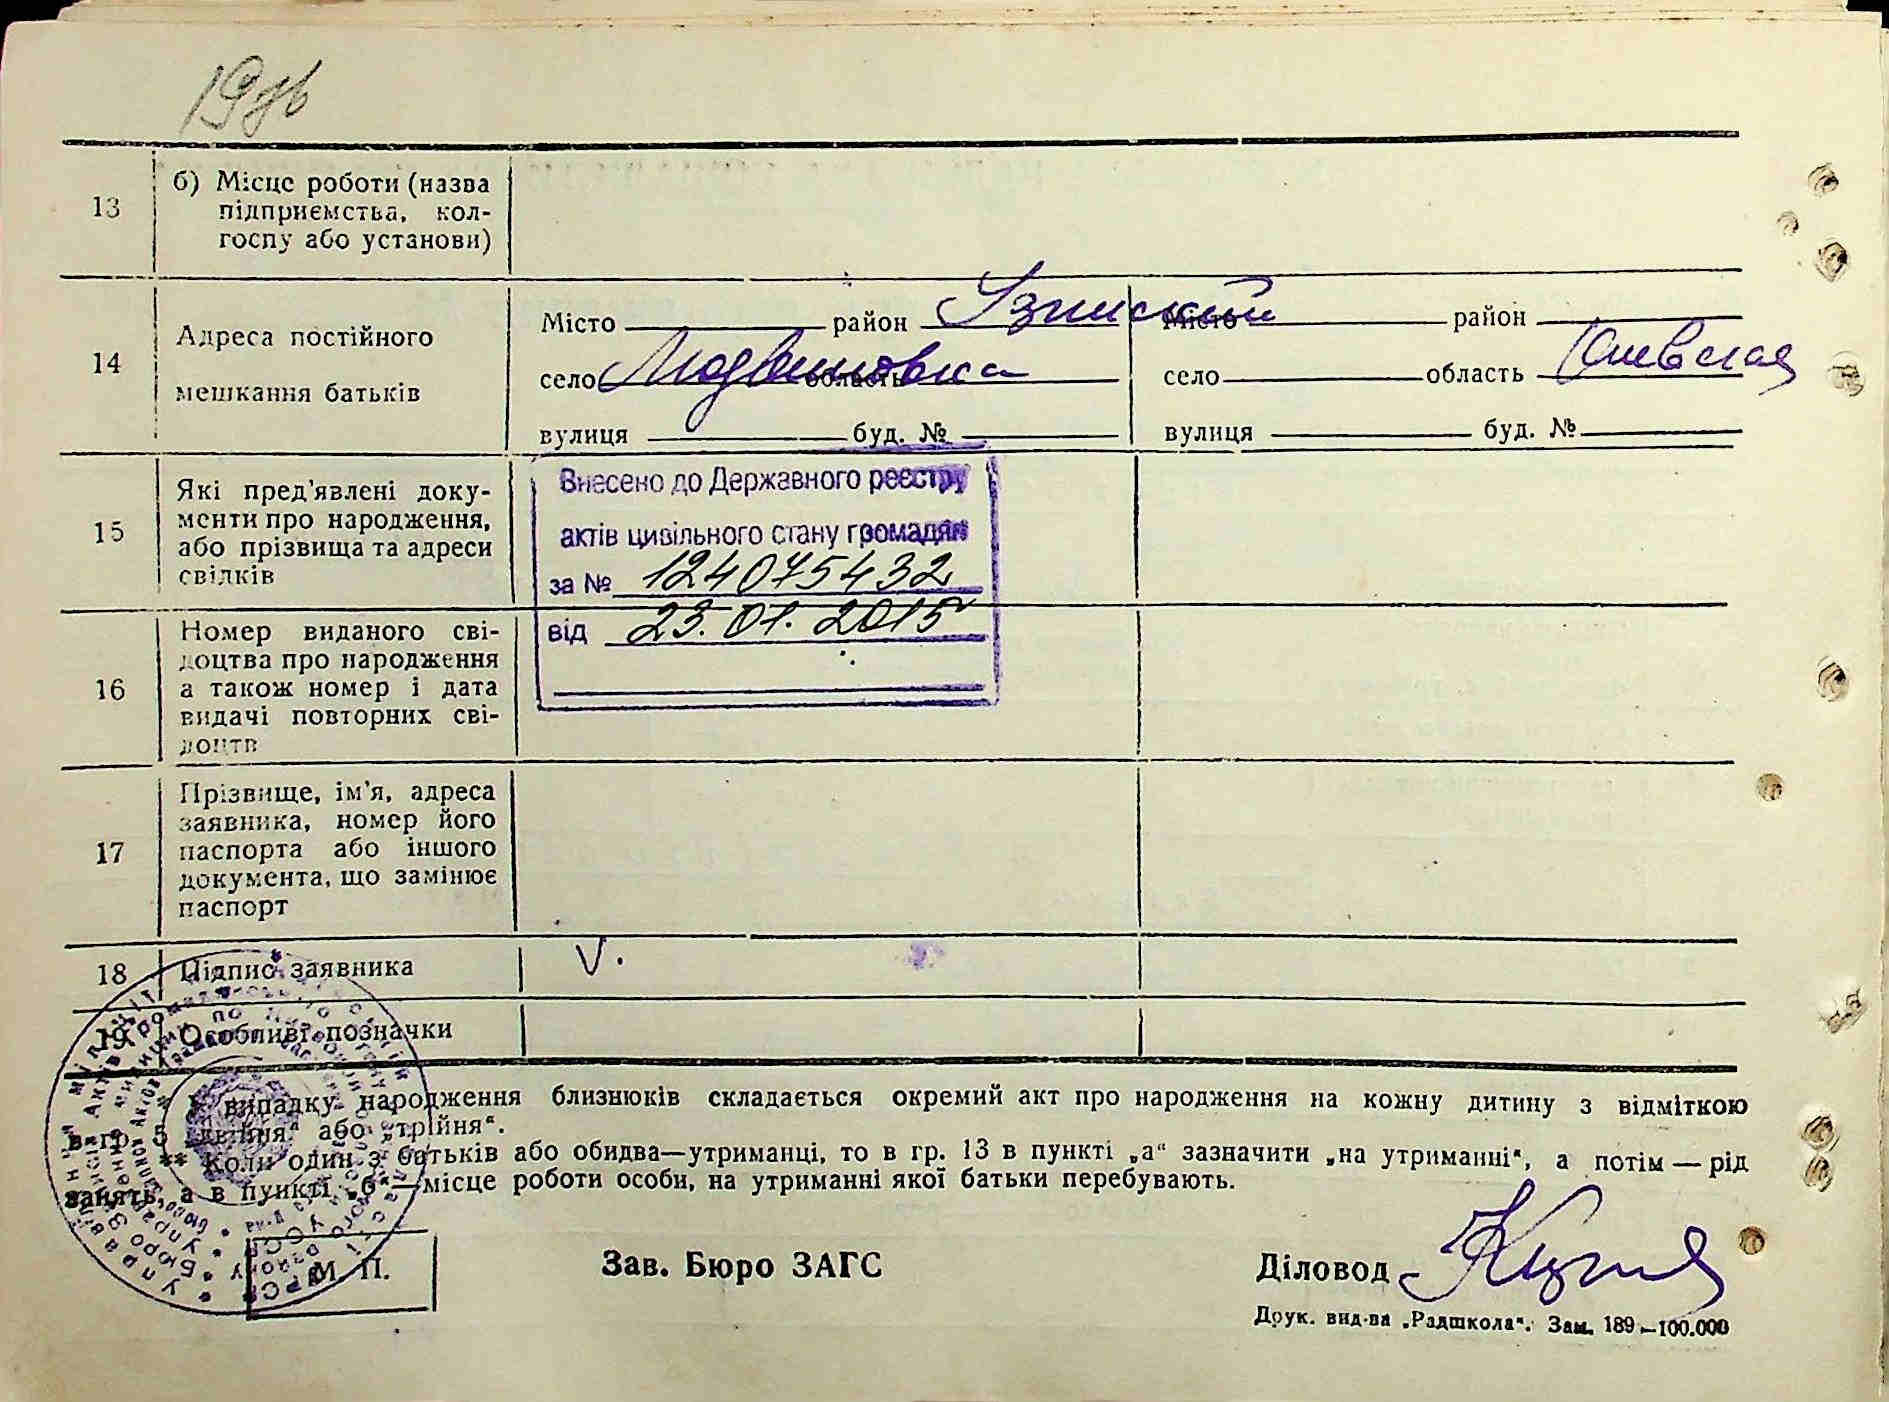 13
б) Місце роботи (назва
підприємства, кол-
госпу або установи)
14
Адреса постійного
мешкання батьків
Місто район Узинский Місто район
село область село область Киевская
вулиця буд. № вулиця буд. №
15
Які пред'явлені доку-
менти про народження,
або прізвища та адреси
свідків
Внесено до Державного реєстру
актів цивільного стану громадян
за № 124075432
від 23.01.2015
16
Номер виданого сві-
доцтва про народження
а також номер і дата
видачі повторних сві-
доцтв
17
Прізвище, ім'я, адреса
заявника, номер його
паспорта або іншого
документа, що замінює
паспорт
18 Підпис заявника V.
19 Особливі позначки
* У випадку народження близнюків складається окремий акт про народження на кожну дитину з відміткою
в гр. 5 „двійня“ або „трійня“.
** Коли один з батьків або обидва—утриманці, то в гр. 13 в пункті „а“ зазначити „на утриманні“, а потім — рід
занять, а в пункті „б“—місце роботи особи, на утриманні якої батьки перебувають.
М. П.
Зав. Бюро ЗАГС
Діловод
Друк. вид-ва „Радшкола“. Зам. 189—100.000